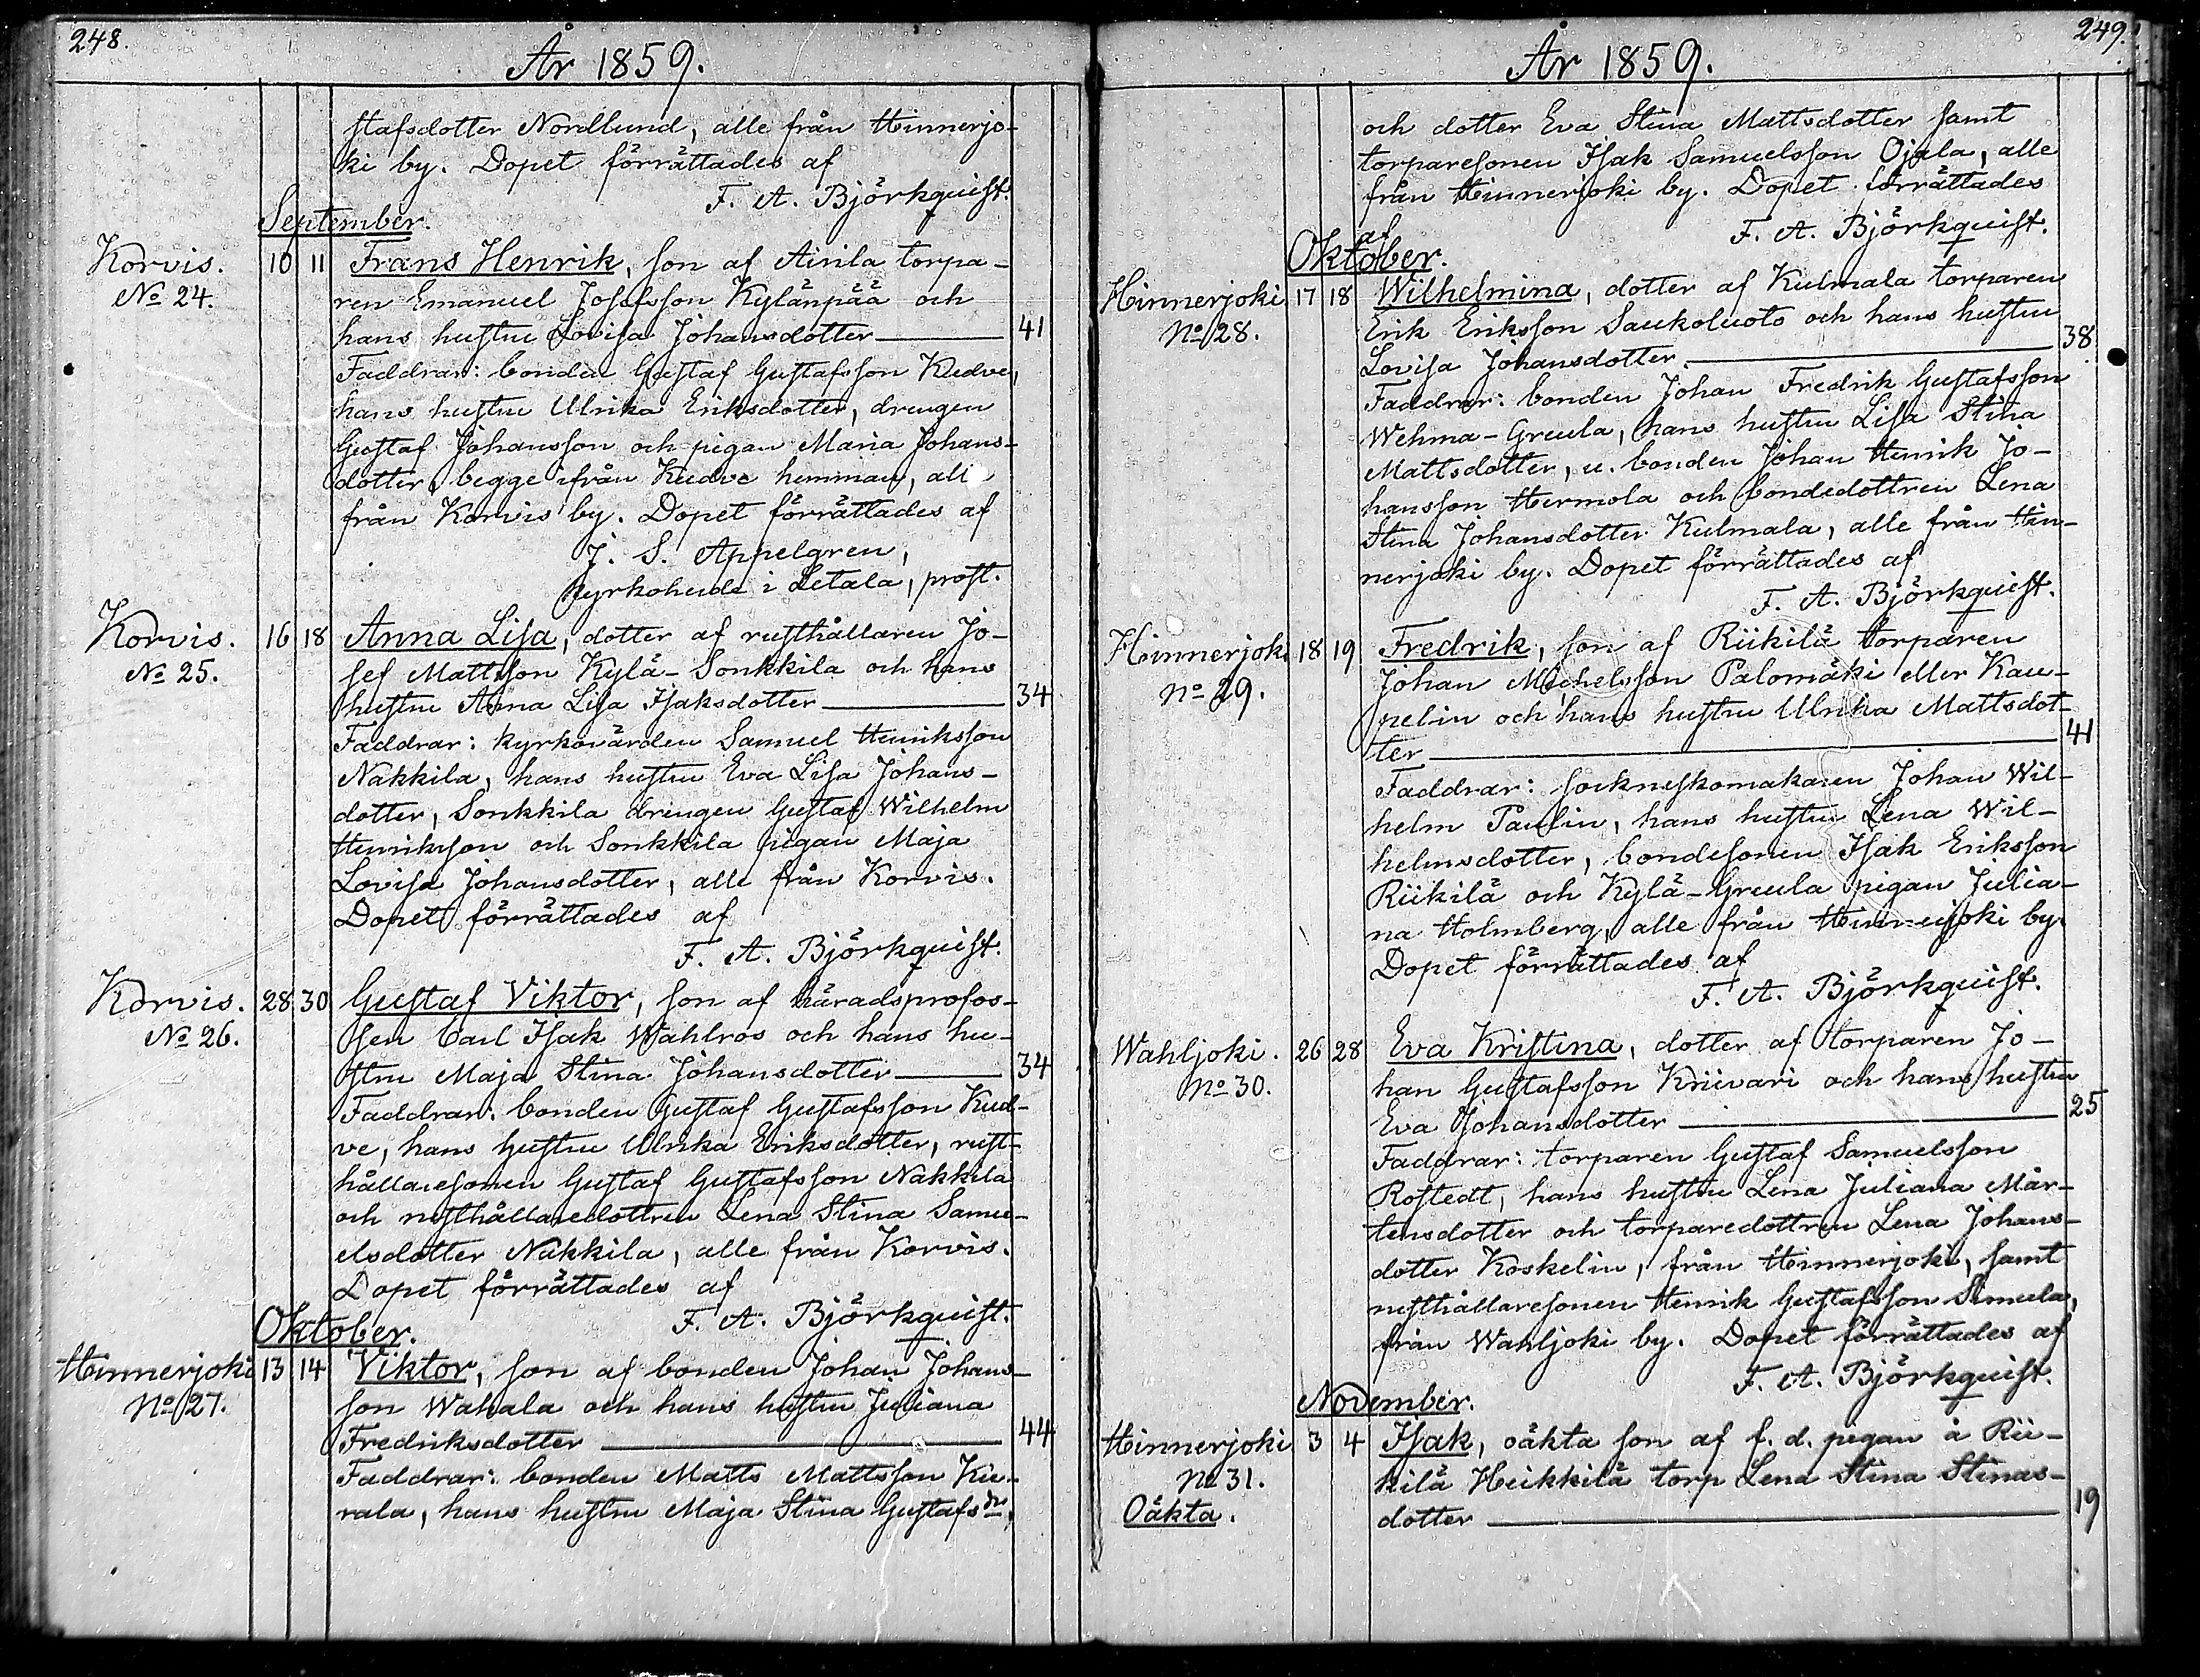 248.
År 1859.
stafsdotter Nordlund, alle från Hinnerjo-
ki by. Dopet förrättades af
F. A. Björkquist.
September.
Korvis. 10 11 Frans Henrik, son af Ainla torpa-
No 24. ren Emanuel Josefsson Kylänpää och
hans hustru Lovisa Johansdotter 41
Faddrar: bonden Gustaf Gustafsson Kudve,
hans hustru Ulrika Eriksdotter, drengen
Gustaf Johansson och pigan Maria Johans-
dotter, begge ifrån Kudve hemman, alle
från Korvis by. Dopet förrättades af
J. S. Appelgren,
Kyrkoherde i Letala, prost.
Korvis. 16 18 Anna Lisa, dotter af rusthållaren Jo-
No 25. sef Mattsson Kylä-Sonkkila och hans
hustru Anna Lisa Isaksdotter 34
Faddrar: kyrkovärden Samuel Henriksson
Nakkila, hans hustru Eva Lisa Johans-
dotter, Sonkkila drengen Gustaf Wilhelm
Henriksson och Sonkkila pigan Maja
Lovisa Johansdotter, alle från Korvis.
Dopet förrättades af
F. A. Björkquist.
Korvis. 28 30 Gustaf Viktor, son af häradsprofos-
No 26. sen Carl Isak Wahlros och hans hu-
stru Maja Stina Johansdotter 34
Faddrar: bonden Gustaf Gustafsson Kud-
ve, hans hustru Ulrika Eriksdotter, rust-
hållaresonen Gustaf Gustafsson Nakkila
och rusthållaredottren Lena Stina Samu-
elsdotter Nakkila, alle från Korvis.
Dopet förrättades af
F. A. Björkquist.
Oktober.
Hinnerjoki 13 14 Viktor, son af bonden Johan Johans-
No 27. son Wahala och hans hustru Juliana
Fredriksdotter 44
Faddrar: bonden Matts Mattsson Kie-
rala, hans hustru Maja Stina Gustafsdr,
249.
År 1859.
och dotter Eva Stina Mattsdotter samt
torparesonen Isak Samuelsson Ojala, alle
från Hinnerjoki by. Dopet förrättades
af F. A. Björkquist.
Oktober.
Hinnerjoki 17 18 Wilhelmina, dotter af Kulmala torparen
No 28. Erik Eriksson Saukoluoto och hans hustru
Lovisa Johansdotter 38
Faddrar: bonden Johan Fredrik Gustafsson
Wehma-Greula, hans hustru Lisa Stina
Mattsdotter, u. bonden Johan Henrik Jo-
hansson Hermola och bondedottren Lena
Stina Johansdotter Kulmala, alle från Hin-
nerjoki by. Dopet förrättades af
F. A. Björkquist.
Hinnerjoki 18 19 Fredrik, son af Riikilä torparen
No 29. Johan Michelsson Palomäki eller Kau-
pelin och hans hustru Ulrika Mattsdot-
ter 41
Faddrar: sockneskomakaren Johan Wil-
helm Paulin, hans hustru Lena Wil-
helmsdotter, bondesonen Isak Eriksson
Riikilä och Kylä-Greula pigan Julia-
na Holmberg, alle från Hinnerjoki by.
Dopet förrättades af
F. A. Björkquist.
Wahljoki. 26 28 Eva Kristina, dotter af torparen Jo-
No 30. han Gustafsson Kriivari och hans hustru
Eva Johansdotter 25
Faddrar: torparen Gustaf Samuelsson
Rostedt, hans hustru Lena Juliana Mår-
tensdotter och torparedottren Lena Johans-
dotter Koskelin, från Hinnerjoki, samt
rusthållaresonen Henrik Gustafsson Simula,
från Wahljoki by. Dopet förrättades af
F. A. Björkquist.
November.
Hinnerjoki 3 4 Isak, oäkta son af f. d. pigan å Rii-
No 31. kilä Heikkilä torp Lena Stina Stinas-
Oäkta. dotter 19